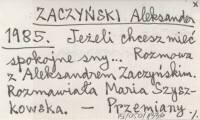 ZACZYŃSKI Aleksander
1985. Jeżeli chcesz mieć
spokojne sny... Rozmowa
z Aleksandrem Zaczyńskim.
Rozmawiała Maria Szysz-
kowska. — Przemiany